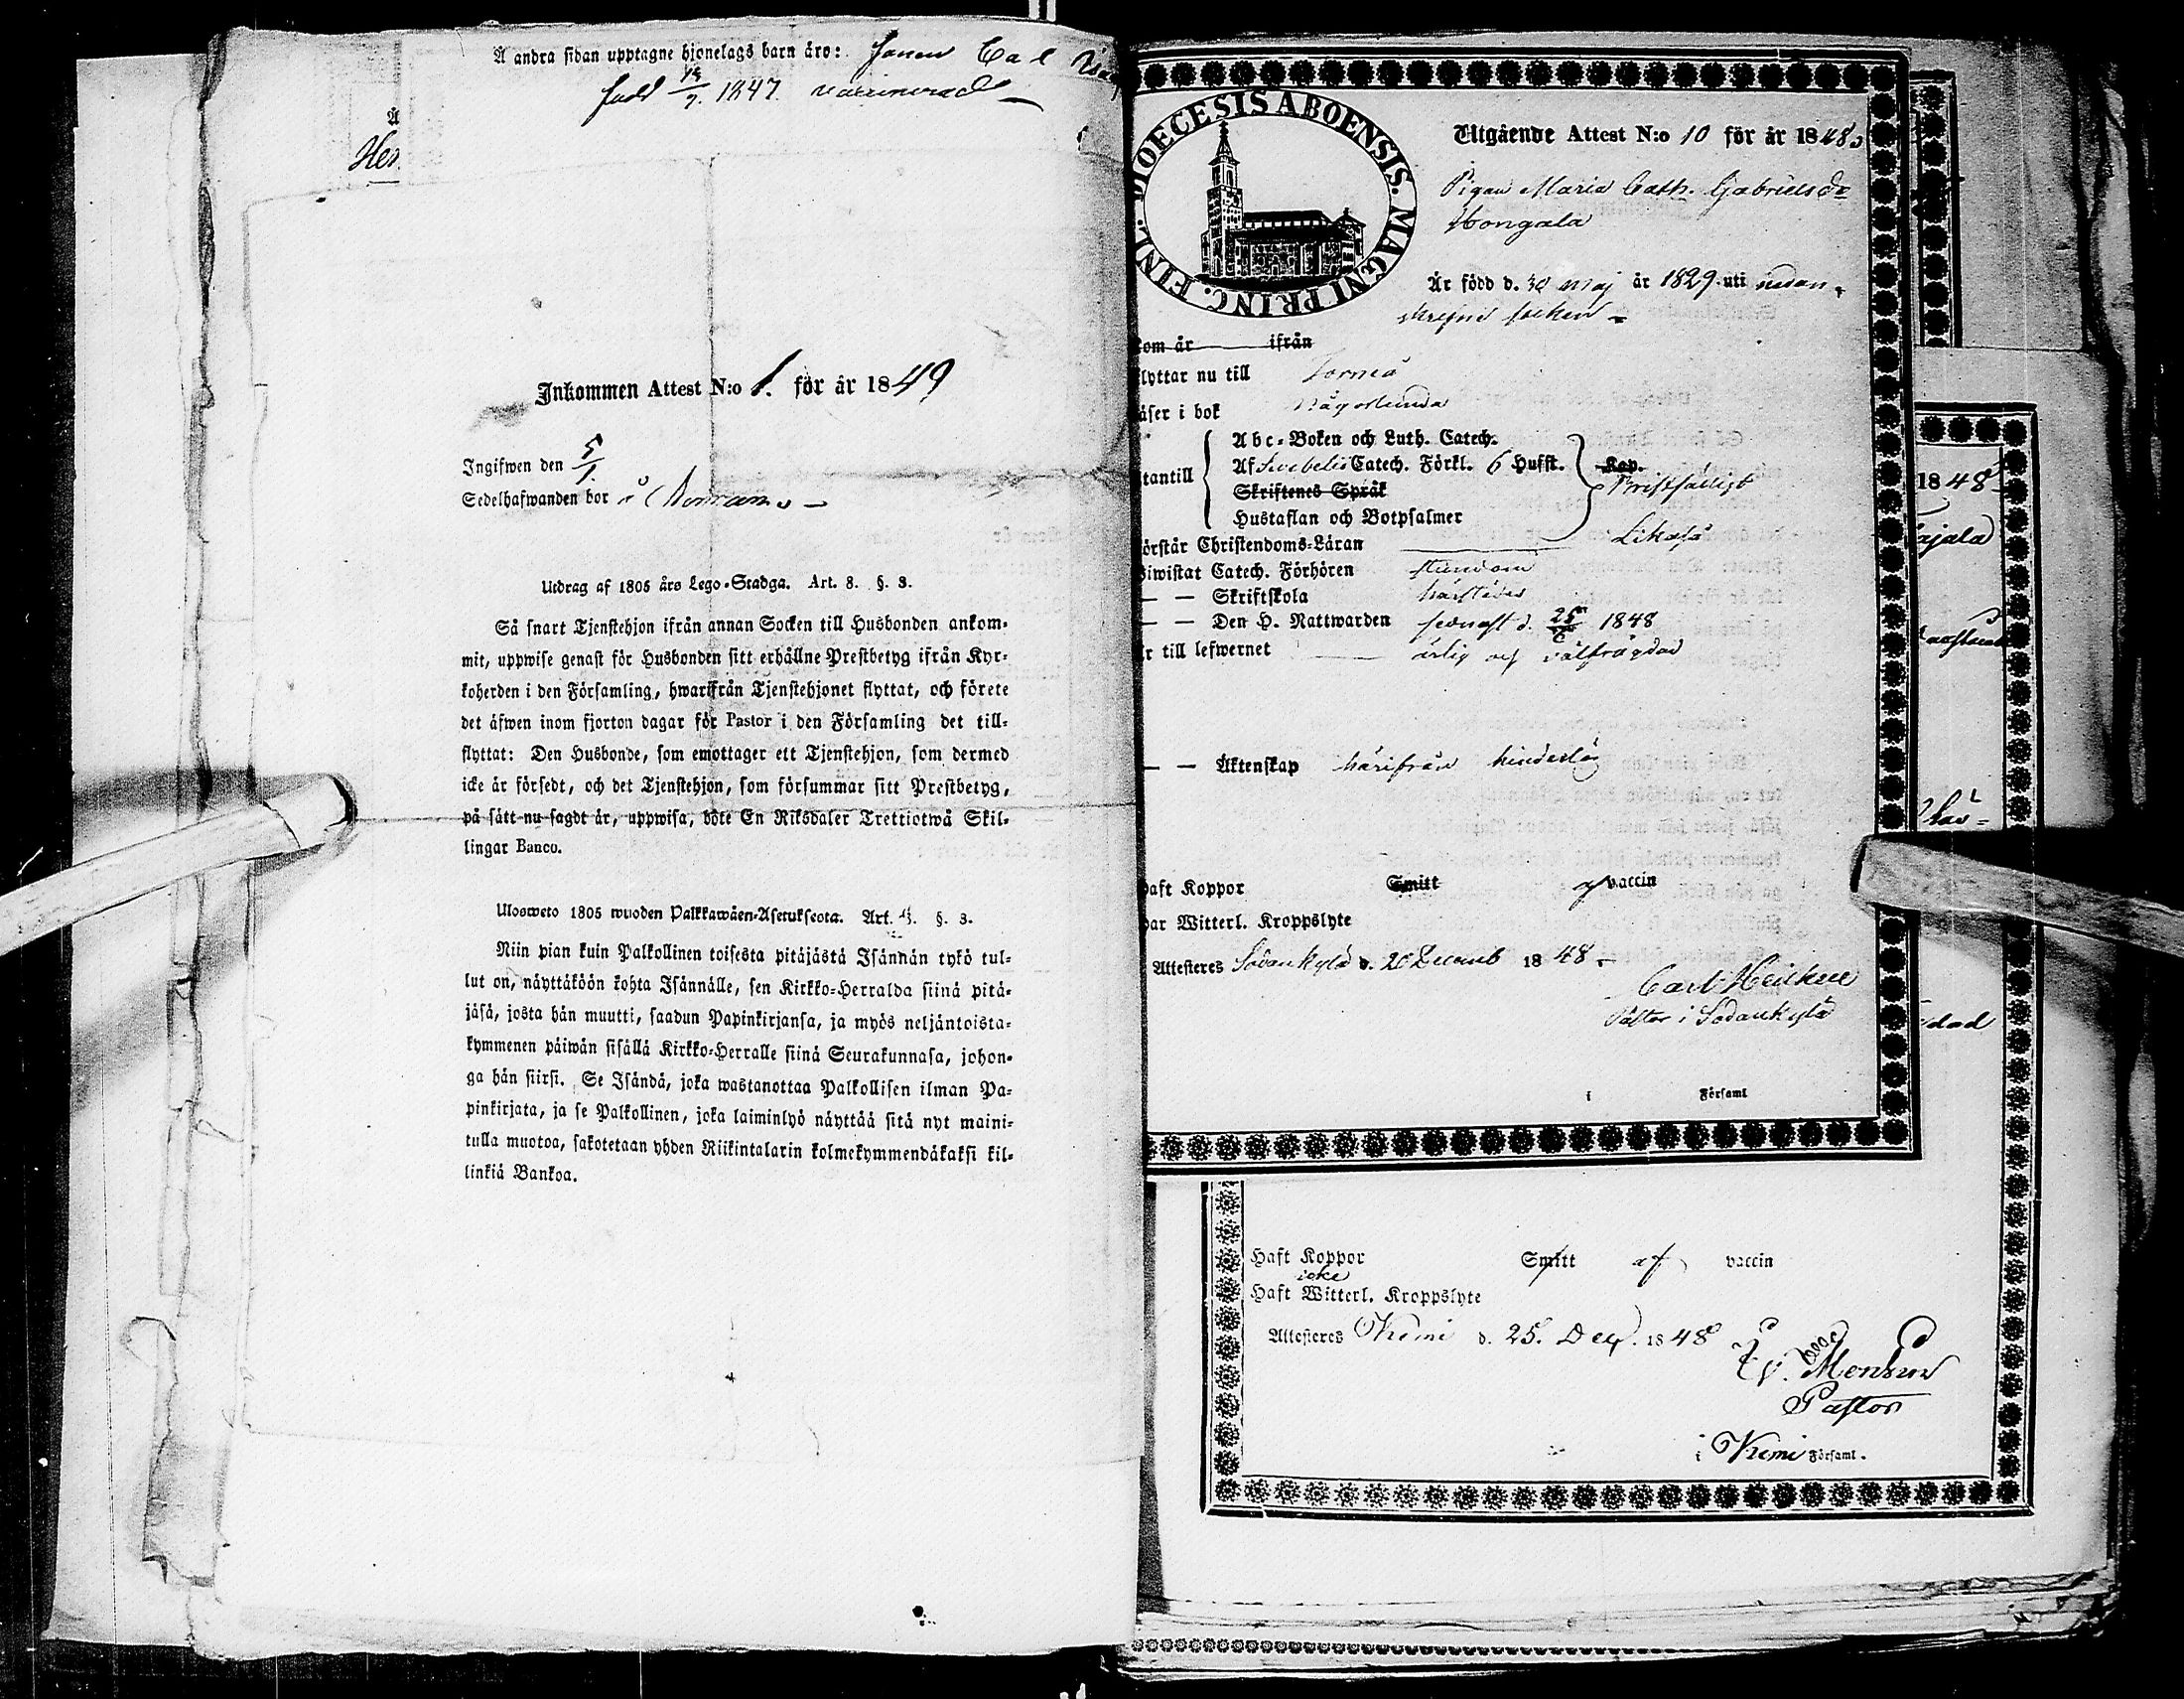 Å andra sidan upptagne hjonelags barn äro: Sonen Carl
född 19/7. 1847. vaccinerad
Hen
Inkommen Attest N:o 1. för år 1849
Ingifwen den 5/1.
Sedelhafwanden bor å
Utdrag af 1805 års Lego-Stadga. Art. 8. §. 3.
Så snart Tjenstehjon ifrån annan Socken till Husbonden ankom-
mit, uppwise genast för Husbonden sitt erhållne Prestbetyg ifrån Kyr-
koherden i den Församling, hwarifrån Tjenstehjonet flyttat, och förete
det äfwen inom fjorton dagar för Pastor i den Församling det till-
flyttat: Den Husbonde, som emottager ett Tjenstehjon, som dermed
icke är försedt, och det Tjenstehjon, som försummar sitt Prestbetyg,
på sätt nu sagdt är, uppwisa, böte En Riksdaler Trettiotwå Skil-
lingar Banco.
Ulosweto 1805 wuoden Palkkawäen-Asetuksesta. Art. 8. §. 3.
Niin pian kuin Palkollinen toisesta pitäjästä Isännän tykö tul-
lut on, näyttäköön kohta Isännälle, sen Kirkko-Herralda siinä pitä-
jäsä, josta hän muutti, saadun Papinkirjansa, ja myös neljäntoista-
kymmenen päiwän sisällä Kirkko-Herralle siinä Seurakunnasa, johon-
ga hän siirsi. Se Isändä, joka wastanottaa Palkollisen ilman Pa-
pinkirjata, ja se Palkollinen, joka laiminlyö näyttää sitä nyt maini-
tulla muotoa, sakotetaan yhden Riikintalarin kolmekymmendäkaksi kil-
linkiä Bankoa.
DIOECESIS ABOENSIS. MAGNI PRINC. FINL.
Utgående Attest N:o 10 för år 1848.
Pigan Maria Cath. Gabrielsdr
Hongala
Är född d. 30 Maj år 1829 uti nedan-
skrefne socken
kom år ifrån
flyttar nu till Torneå
läser i bok någorlunda
Abc-Boken och Luth. Catech.
utantill Af Svebelii Catech. Förkl. 6 Hufst. Kap.
Skriftenes Språk Bristfälligt
Hustaflan och Botpsalmer
förstår Christendoms-Läran Likaså
biwistat Catech. Förhören stundom
— — Skriftskola härstädes
— — Den H. Nattwarden senast d. 25/6 1848
är till lefwernet ärlig och välfrägdad
— — Äktenskap härifrån hinderslös
haft Koppor Smitt af vaccin
har Witterl. Kroppslyte
Attesteres Sodankylä d. 20 Decemb 1848.
Carl Heickell
Pastor i Sodankylä
i Församl
1848
ajala
dad
Haft Koppor Smitt af vaccin
icke
Haft Witterl. Kroppslyte
Attesteres Kemi d. 25. Dec. 1848
Pastor
i Kemi Församl.